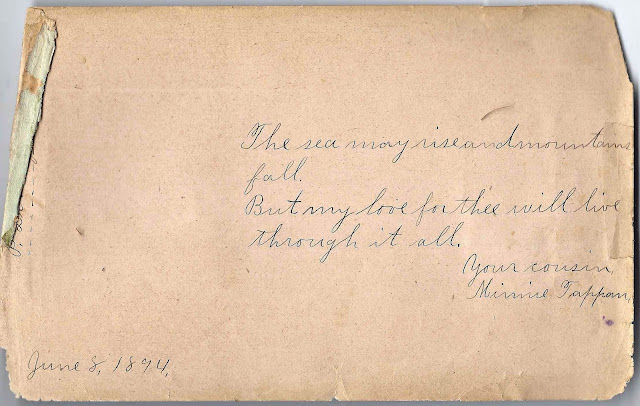 The sea may rise and mountains
fall.
But my love for thee will live
through it all.
Your cousin,
Minnie Tappan,
June 8, 1894.